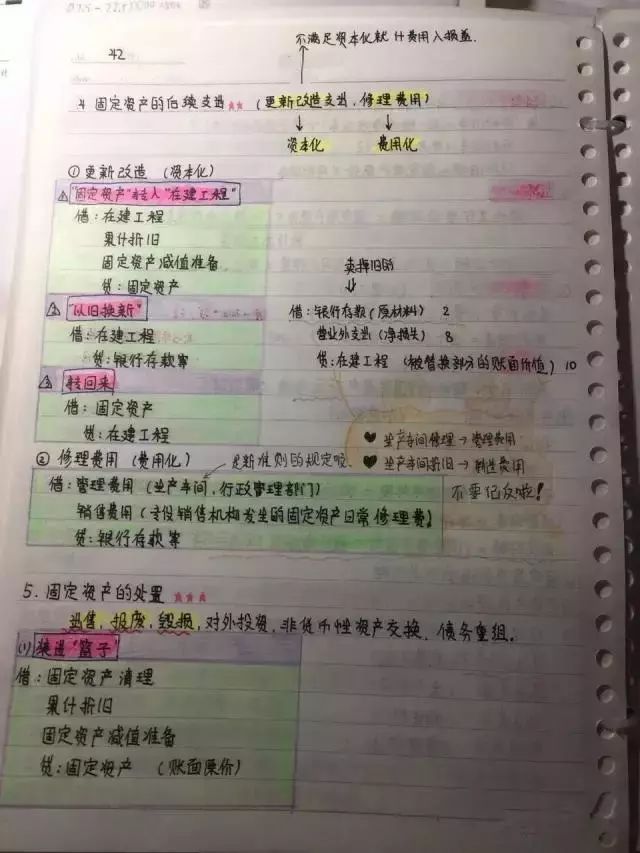 不满足资本化就计费用入损益.
42
4 固定资产的后续支出★★ (更新改造支出,修理费用)
资本化 费用化
① 更新改造 (资本化)
"固定资产"转入"在建工程"
借:在建工程
累计折旧
固定资产减值准备
贷:固定资产
卖掉旧的
"以旧换新"
借:银行存款(原材料) 2
借:在建工程
营业外支出(净损失) 8
贷:银行存款等
贷:在建工程 (被替换部分的账面价值) 10
转回来
借:固定资产
贷:在建工程
♥ 生产车间修理→管理费用
② 修理费用 (费用化) 是新准则的规定哎.
♥ 生产车间折旧→制造费用
借:管理费用 (生产车间,行政管理部门)
不要记反啦!
销售费用 (专设销售机构发生的固定资产日常修理费)
贷:银行存款等
5. 固定资产的处置 ★★★
出售,报废,毁损,对外投资,非货币性资产交换,债务重组.
(1) 装进"篮子"
借:固定资产清理
累计折旧
固定资产减值准备
贷:固定资产 (账面原价)